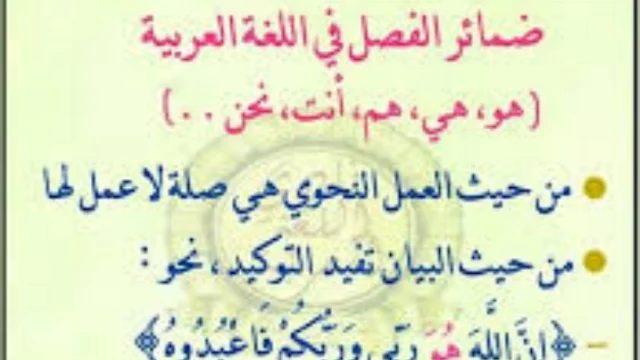 ضمائر الفصل في اللغة العربية
(هو، هي، هم، أنت، نحن . . )
من حيث العمل النحوي هي صلة لا عمل لها
من حيث البيان تفيد التوكيد، نحو :
- ﴿إِنَّ اللَّهَ هُوَ رَبِّي وَرَبُّكُمْ فَاعْبُدُوهُ﴾